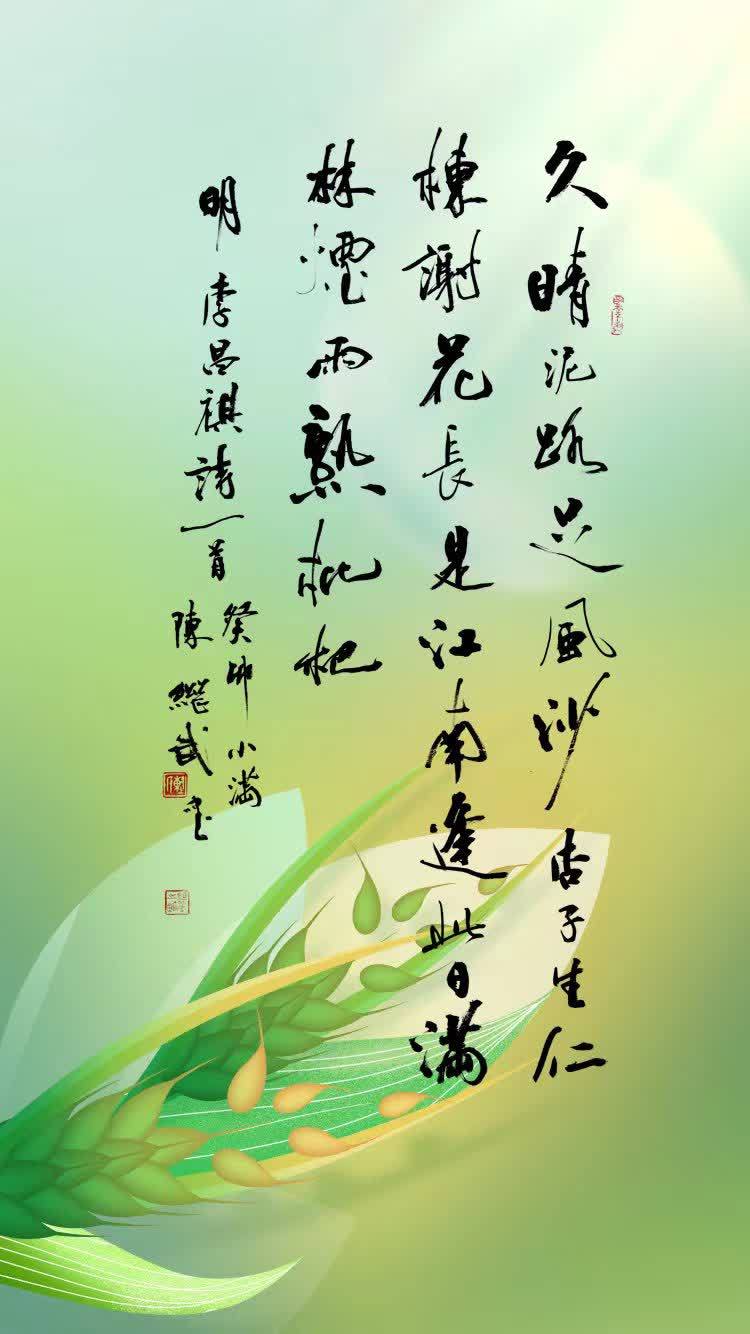 久晴泥路足風沙杏子生仁
楝謝花長是江南逢此日滿
林煙雨熟枇杷
明李昌祺詩一首
癸卯小滿
陳繼武書